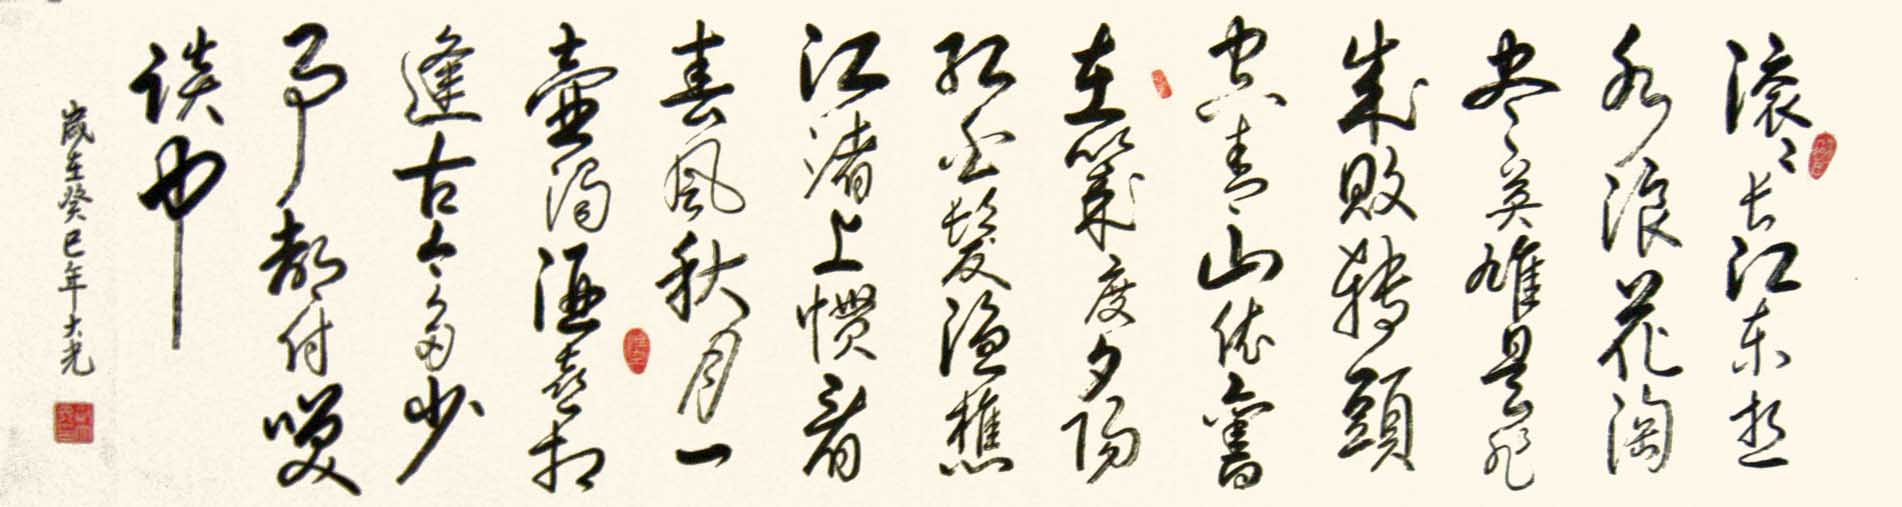 滚滚长江东逝
水浪花淘
尽英雄是非
成败转頭
空青山依舊
在幾度夕阳
红白髮渔樵
江渚上慣看
春風秋月一
壶浊酒喜相
逢古今多少
事都付笑
谈中
歲在癸巳年大光